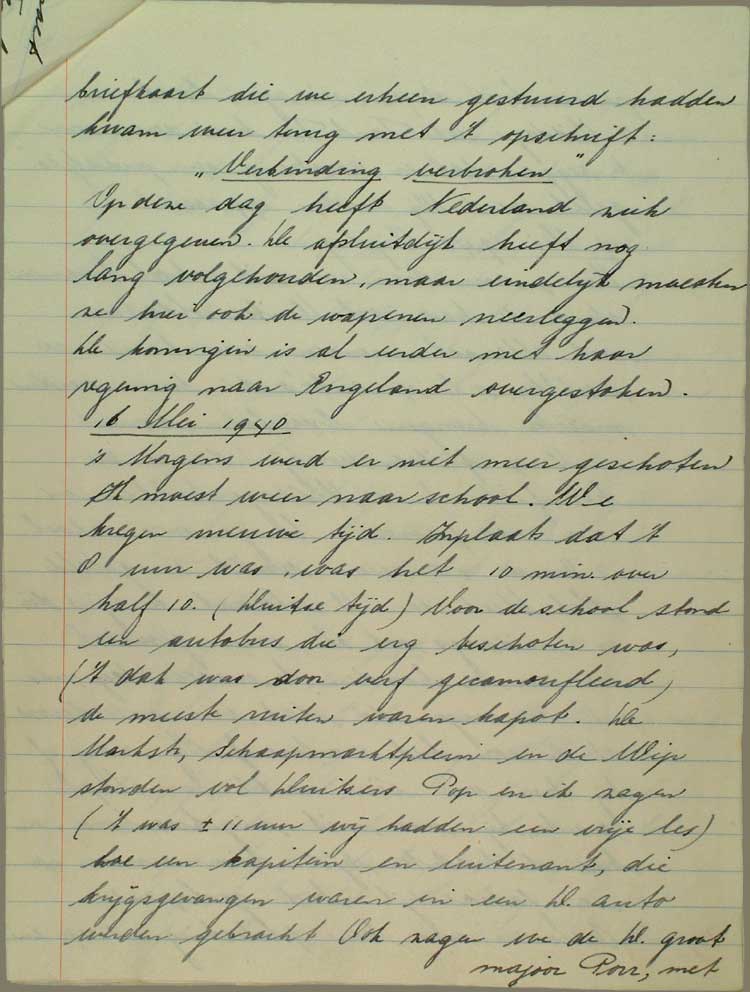 briefkaart die we erheen gestuurd hadden
kwam weer terug met 't opschrift:
„Verbinding verbroken"
Op deze dag heeft Nederland zich
overgegeven. De afsluitdijk heeft nog
lang volgehouden, maar eindelijk moesten
ze hier ook de wapenen neerleggen.
De koningin is al eerder met haar
regering naar Engeland overgestoken.
16 Mei 1940
's Morgens werd er niet meer geschoten
Ik moest weer naar school. We
kregen nieuwe tijd. Inplaats dat 't
8 uur was, was het 10 min. over
half 10. (Duitse tijd) Voor de school stond
een autobus die erg beschoten was,
('t dak was door verf gecamoufleerd)
de meeste ruiten waren kapot. De
Marktstr, Schaapmarktplein en de Wip
stonden vol Duitsers Pop en ik zagen
('t was ± 11 uur wij hadden een vrije les)
hoe een kapitein en luitenant, die
krijgsgevangen waren in een D. auto
werden gebracht Ook zagen we de D. groot
majoor met